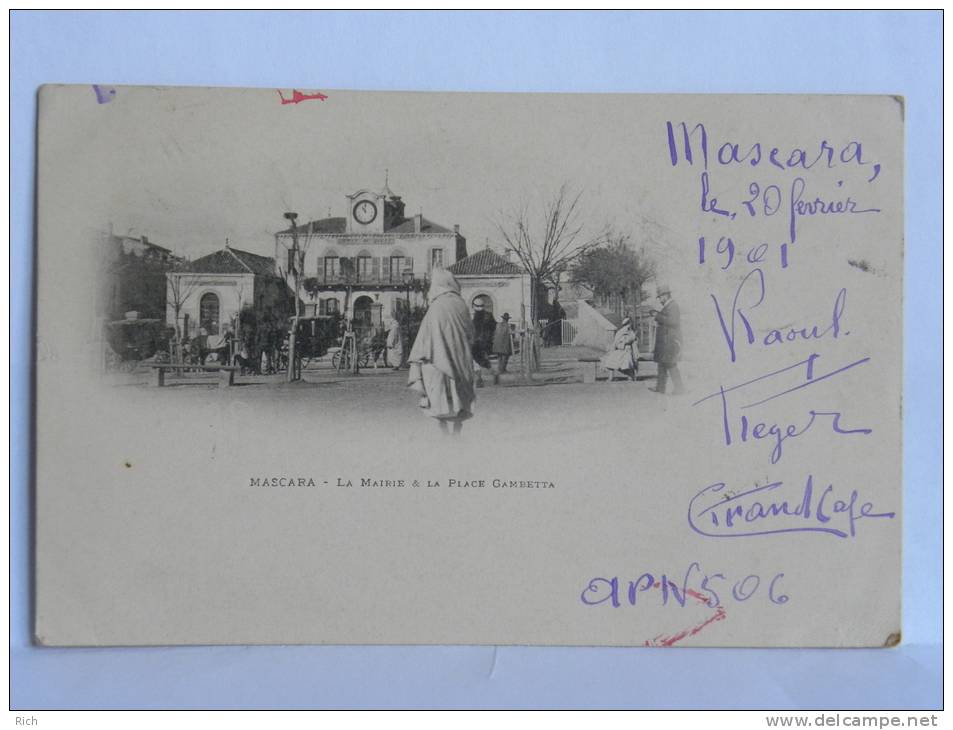 Mascara,
le, 20 fevrier
1901
Raoul.
Tieger
Grand Cafe
APN 506
MASCARA - LA MAIRIE & LA PLACE GAMBETTA
Rich
www.delcampe.net